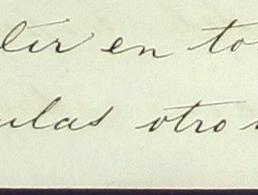 tir en to
ulas otro